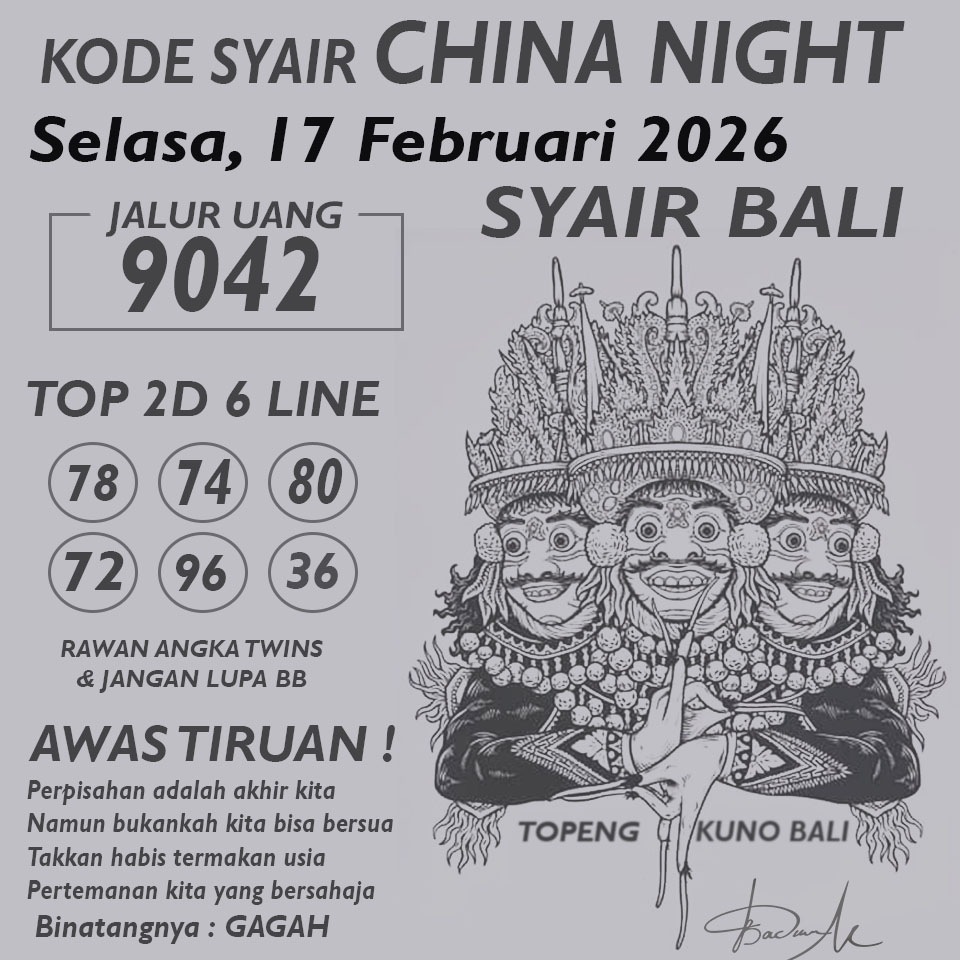 KODE SYAIR CHINA NIGHT
Selasa, 17 Februari 2026
SYAIR BALI
JALUR UANG
9042
TOP 2D 6 LINE
78 74 80
72 96 36
RAWAN ANGKA TWINS
& JANGAN LUPA BB
AWAS TIRUAN !
Perpisahan adalah akhir kita
Namun bukankah kita bisa bersua
Takkan habis termakan usia
Pertemanan kita yang bersahaja
Binatangnya : GAGAH
TOPENG KUNO BALI